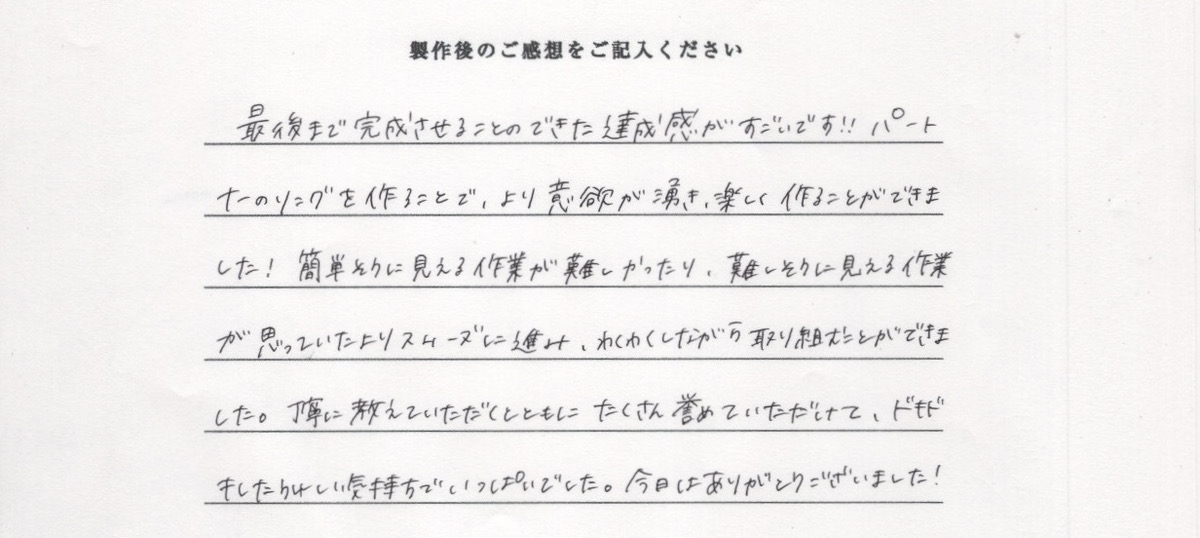 製作後のご感想をご記入ください
最後まで完成させることのできた達成感がすごいです!! パート
ナーのリングを作ることで、より意欲が湧き、楽しく作ることができま
した! 簡単そうに見える作業が難しかったり、難しそうに見える作業
が思っていたよりスムーズに進み、わくわくしながら取り組むことができま
した。丁寧に教えていただくとともにたくさん誉めていただけて、ドキド
キしたうれしい気持ちでいっぱいでした。今日はありがとうございました!